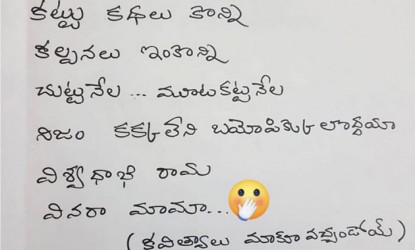 కట్టు కథలు కొన్ని
కల్పనలు ఇంకొన్ని
చుట్టనేల ... మూటకట్టనేల
నిజం కక్కలేని బయోపిక్కులొద్దయా
విశ్వదాభి రామ
వినరా మామా...
(కవిత్వాలు మాకూ వచ్చండోయ్)